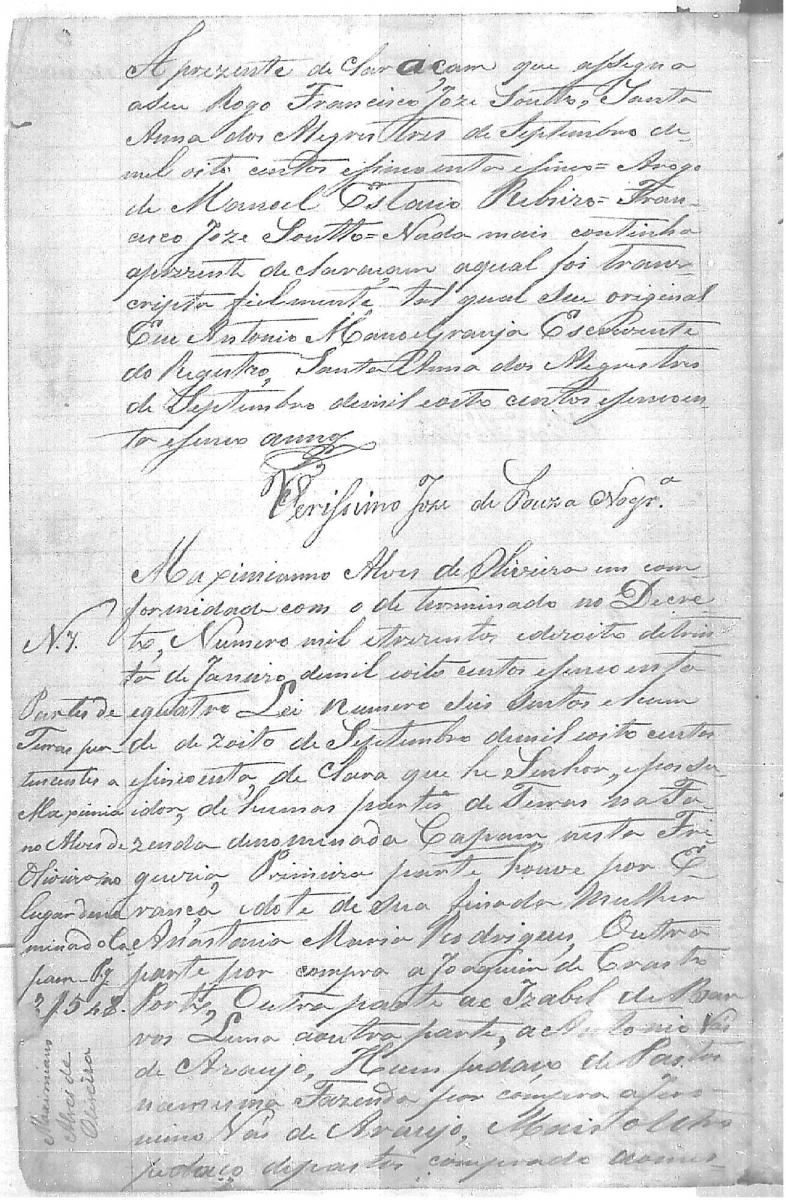 A prezente de claraçam que assegna
a seu Rogo Francisco Joze Soutto, Santa
Anna dos Alegres tres de Septembro de
mil oito centos e sincoenta e sinco = Arogo
de Manoel Estacio Ribeiro = Fran-
cisco Joze Soutto = Nada mais continha
aprezente de claraçam aqual foi trans-
cripta fielmente, tal qual seu original
Eu Antonio Manoel Granja Escrevente
do Registro, Santa Anna dos Alegres tres
de Septembro demil eoito centos esincoen-
ta esinco annos
Verissimo Joze de Souza Nogr.ª
Maximianno Alves de Oliveira em com-
formidade com o de terminado no Decre-
to, Numero mil etrezentos edezoito detrin-
ta de Janeiro demil eoito centos esincoenta
equatro Lei numero seis centos ehum
de de zoito de Septembro demil eoito centos
esincoenta, de clara que he Senhor, epossu-
idor, de humas partes de Terras na Fa-
zenda denominada Capam nesta Fre
guezia, Primeira parte houve por E-
rança, edote de sua finada Mulher
Anastania Maria Rodrigues, Outra
parte por compra a Joaquim de Crasto
Porto, Outra parte ac Izabel de Bar
ros Lima aoutra parte, a Antonio Vás
de Araujo, Hum pedaço de Pastos
namesma Fazenda por compra a Jero-
nimo Vás de Araujo, Mais outro
pedaço depastos comprado aomes-
N. 7.
Partes de
Terras per
tencentes a
Maximia
no Alves de
Oliveira no
lugar deno
minado Ca
pam - Pg
2$548.
Maximiano
Alves de
Oliveira